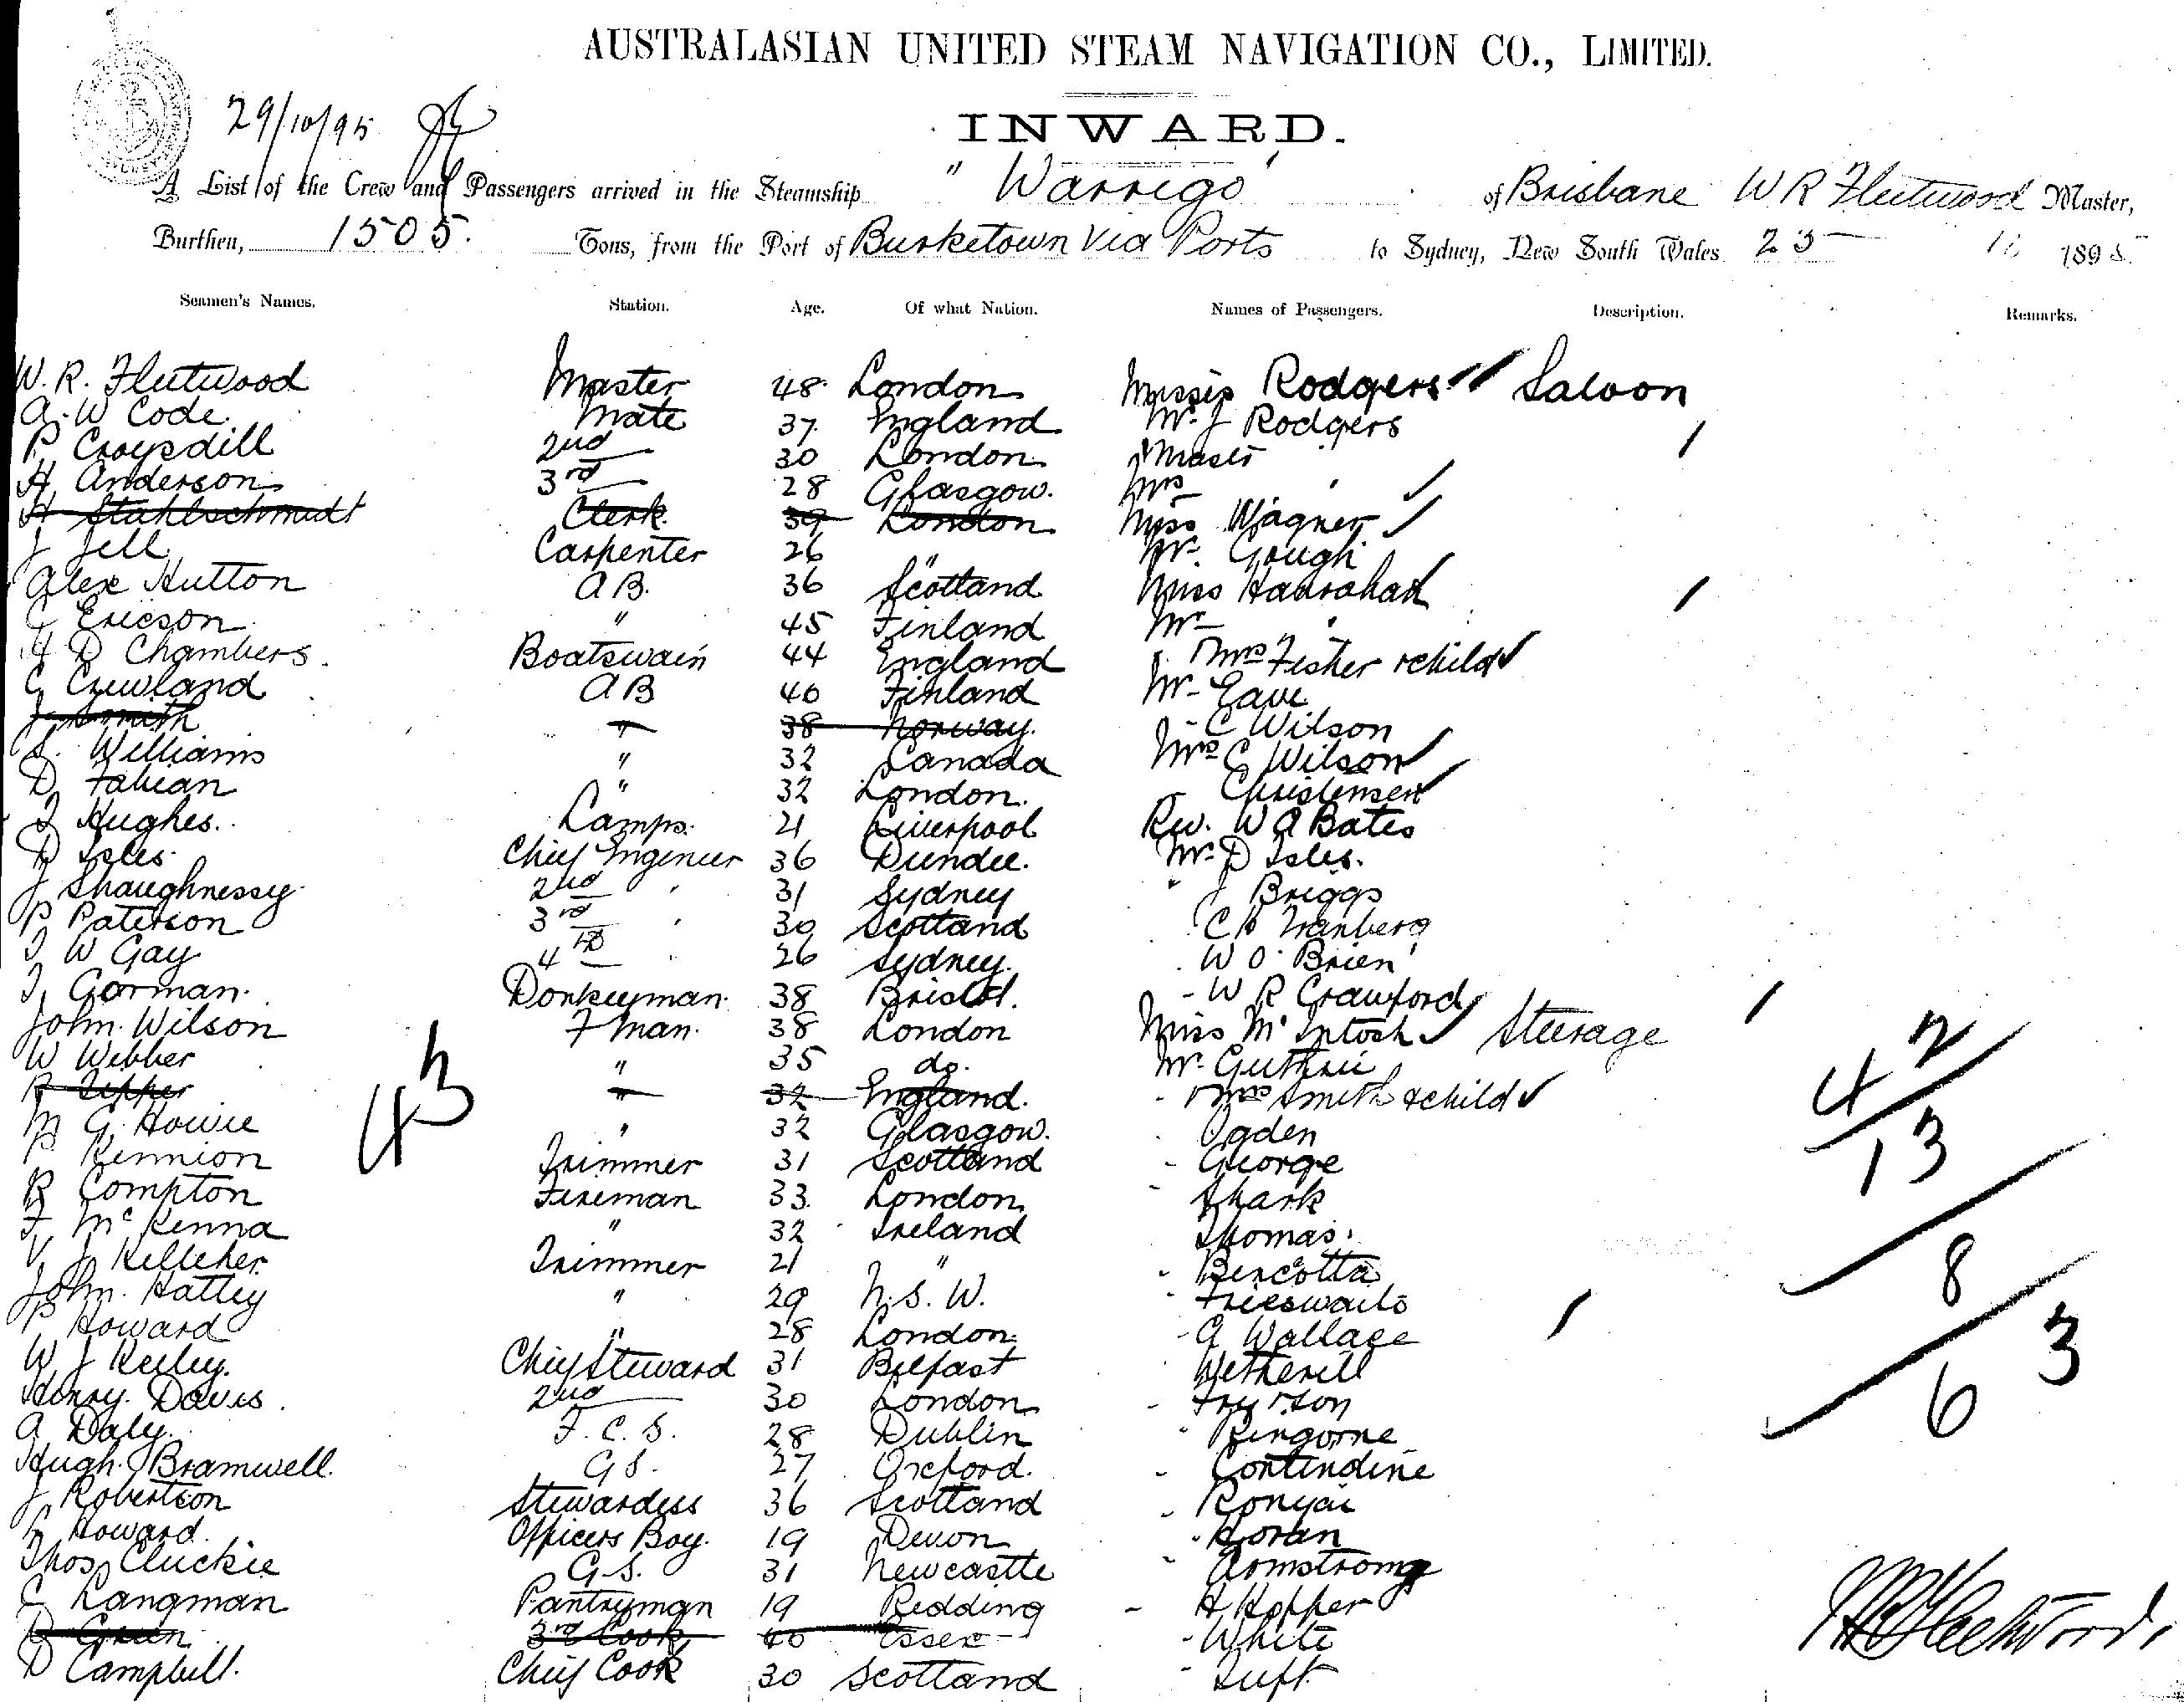 AUSTRALASIAN UNITED STEAM NAVIGATION CO., LIMITED.
29/10/95
INWARD.
A List of the Crew and Passengers arrived in the Steamship "Warrego" of Brisbane W R Fleetwood Master,
Burthen, 1505. Tons, from the Port of Burketown Via Ports to Sydney, New South Wales 189
Seamen's Names. Station. Age. Of what Nation. Names of Passengers. Description. Remarks.
W. R. Fleetwood Master 48 London Misses Rodgers Saloon
A. W Code. Mate 37. England Mr. J Rodgers
P. Croysdill 2nd 30 London
H Anderson 3rd 28 Glasgow. Mrs "
H Stahlschmidt Clerk 39 London Miss Wagner
J Jell Carpenter 26 " Mr. Gough
Alex Hutton A B. 36 Scotland Miss Hanrahan
C Ericson " 45 Finland Mr "
H D Chambers. Boatswain 44 England " Mrs Fisher & child
A B 40 Finland Mr Eave
J Smith " 38 Norway. " C Wilson
Williams " 32 Canada Mrs C Wilson
D Fabian " 32 London. " Christensen
J Hughes. Lamps. 21 Liverpool Rev. W A Bates
D Isles. Chief Engineer 36 Dundee. Mr D Isles.
J Shaughnessy 2nd " 31 Sydney " J Briggs
P Paterson 3rd " 30 Scotland
J W Gay 4th " 26 Sydney. W O'Brien
J, Gorman. Donkeyman. 38 Bristol. - W R Crawford
John. Wilson F man. 38 London Miss McIntosh Steerage
W Webber " 35 do. Mr. Guthrie
" 32 England. - Mrs Smith & child
M G. Howie " 32 Glasgow. Ogden
P Kennion Trimmer 31 Scotland - George
R Compton Fireman 33. London - Shark
F. McKenna " 32 Ireland Thomas.
V. J Kelleher Trimmer 21 "
John. Hattey " 29 N. S. W.
P Howard " 28 London. - A Wallace
W J Keiley. Chief Steward 31 Belfast Wetherill
Henry. Davis. 2nd 30 London
A Daly. F. C. S. 28 Dublin
Hugh. Bramwell. G S. 27 Oxford. - Contindine
J Robertson Stewardess 36 Scotland
Howard. Officers Boy. 19 Devon - Horan
Thos Cluckie G. S. 31 Newcastle - Armstrong
C Langman Pantryman 19 Redding - H Hopper
B Green 3rd Cook 40 Essex - White
D Campbell. Chief Cook 30 Scotland - Tuft
43
42
13
8
6 3
W R Fleetwood